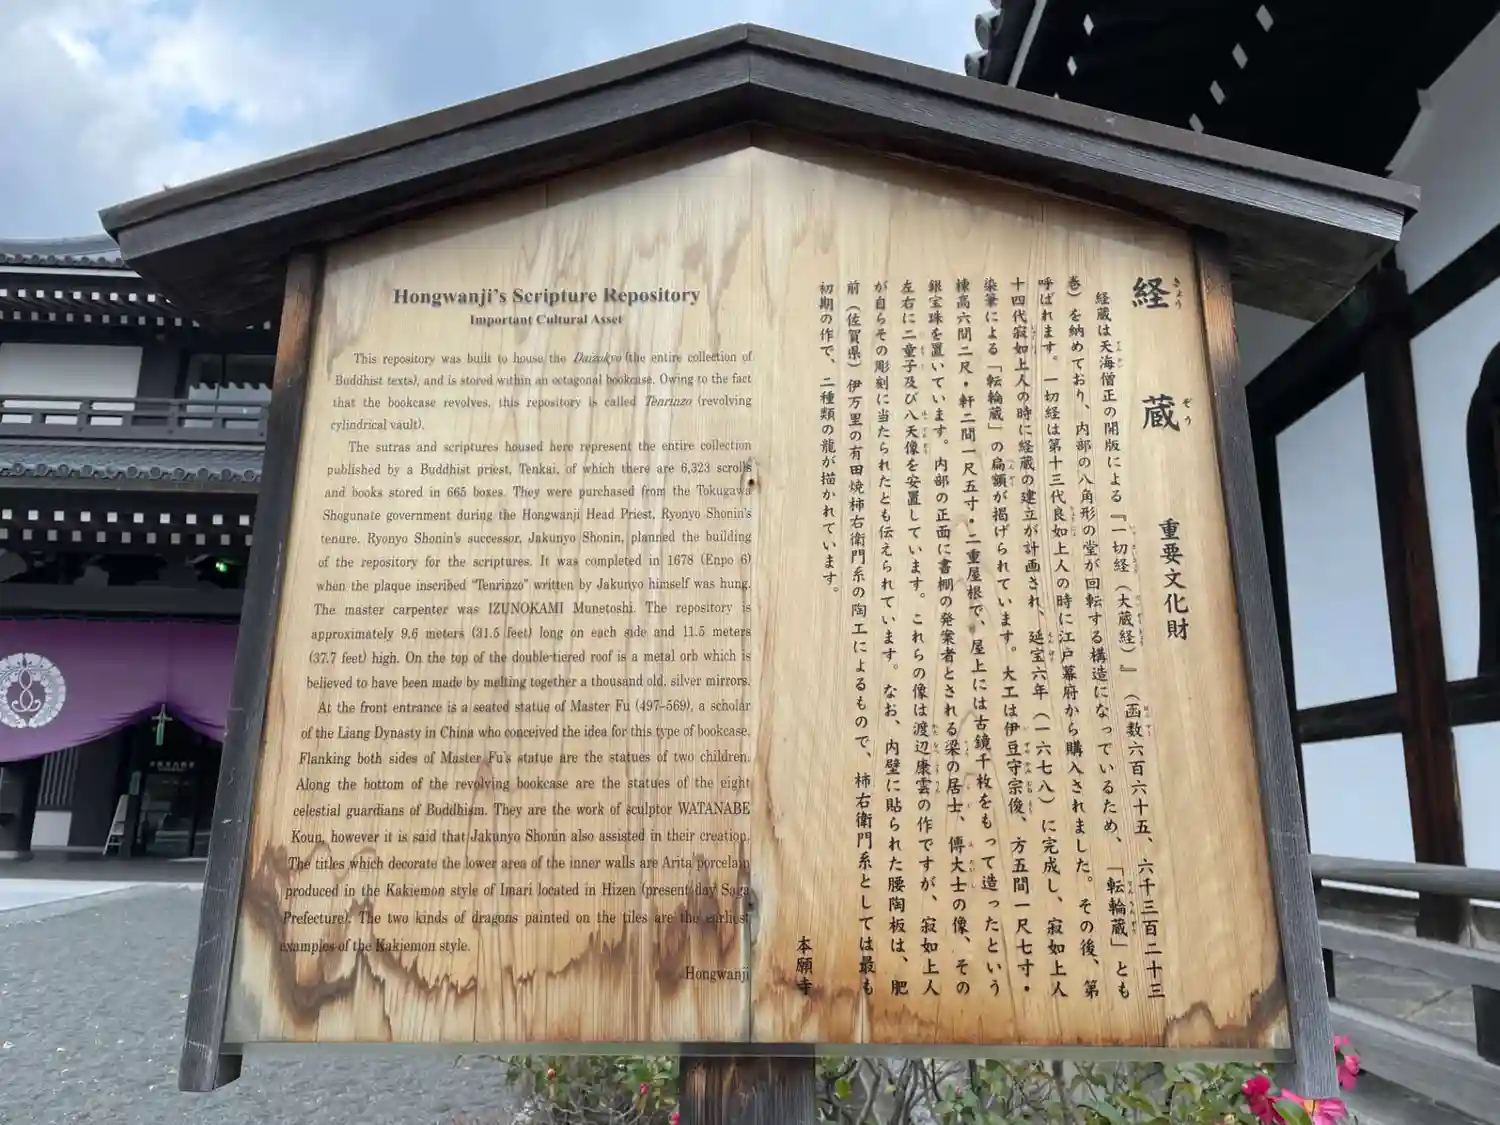 Hongwanji's Scripture Repository
Important Cultural Asset
This repository was built to house the Daizokyo (the entire collection of
Buddhist texts), and is stored within an octagonal bookcase. Owing to the fact
that the bookcase revolves, this repository is called Tenrinzo (revolving
cylindrical vault).
The sutras and scriptures housed here represent the entire collection
published by a Buddhist priest, Tenkai, of which there are 6,323 scrolls
and books stored in 665 boxes. They were purchased from the Tokugawa
Shogunate government during the Hongwanji Head Priest, Ryonyo Shonin's
tenure. Ryonyo Shonin's successor, Jakunyo Shonin, planned the building
of the repository for the scriptures. It was completed in 1678 (Enpo 6)
when the plaque inscribed "Tenrinzo" written by Jakunyo himself was hung.
The master carpenter was IZUNOKAMI Munetoshi. The repository is
approximately 9.6 meters (31.5 feet) long on each side and 11.5 meters
(37.7 feet) high. On the top of the double-tiered roof is a metal orb which is
believed to have been made by melting together a thousand old, silver mirrors.
At the front entrance is a seated statue of Master Fu (497–569), a scholar
of the Liang Dynasty in China who conceived the idea for this type of bookcase.
Flanking both sides of Master Fu's statue are the statues of two children.
Along the bottom of the revolving bookcase are the statues of the eight
celestial guardians of Buddhism. They are the work of sculptor WATANABE
Koun, however it is said that Jakunyo Shonin also assisted in their creation.
The titles which decorate the lower area of the inner walls are Arita porcelain
produced in the Kakiemon style of Imari located in Hizen (present-day Saga
Prefecture). The two kinds of dragons painted on the tiles are the earliest
examples of the Kakiemon style.
Hongwanji
経蔵 重要文化財
経蔵は天海僧正の開版による『一切経(大蔵経)』(函数六百六十五、六千三百二十三
巻)を納めており、内部の八角形の堂が回転する構造になっているため、「転輪蔵」とも
呼ばれます。一切経は第十三代良如上人の時に江戸幕府から購入されました。その後、第
十四代寂如上人の時に経蔵の建立が計画され、延宝六年(一六七八)に完成し、寂如上人
染筆による「転輪蔵」の扁額が掲げられています。大工は伊豆守宗俊、方五間一尺七寸・
棟高六間二尺・軒二間一尺五寸・二重屋根で、屋上には古鏡千枚をもって造ったという
銀宝珠を置いています。内部の正面に書棚の発案者とされる梁の居士、傅大士の像、その
左右に二童子及び八天像を安置しています。これらの像は渡辺康雲の作ですが、寂如上人
が自らその彫刻に当たられたとも伝えられています。なお、内壁に貼られた腰陶板は、肥
前(佐賀県)伊万里の有田焼柿右衛門系の陶工によるもので、柿右衛門系としては最も
初期の作で、二種類の龍が描かれています。
本願寺